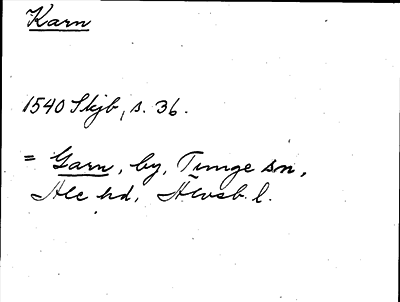 Karn
1540 Skjb, s. 36.
= Garn, by, Tunge sn,
Ale hd, Älvsb. l.